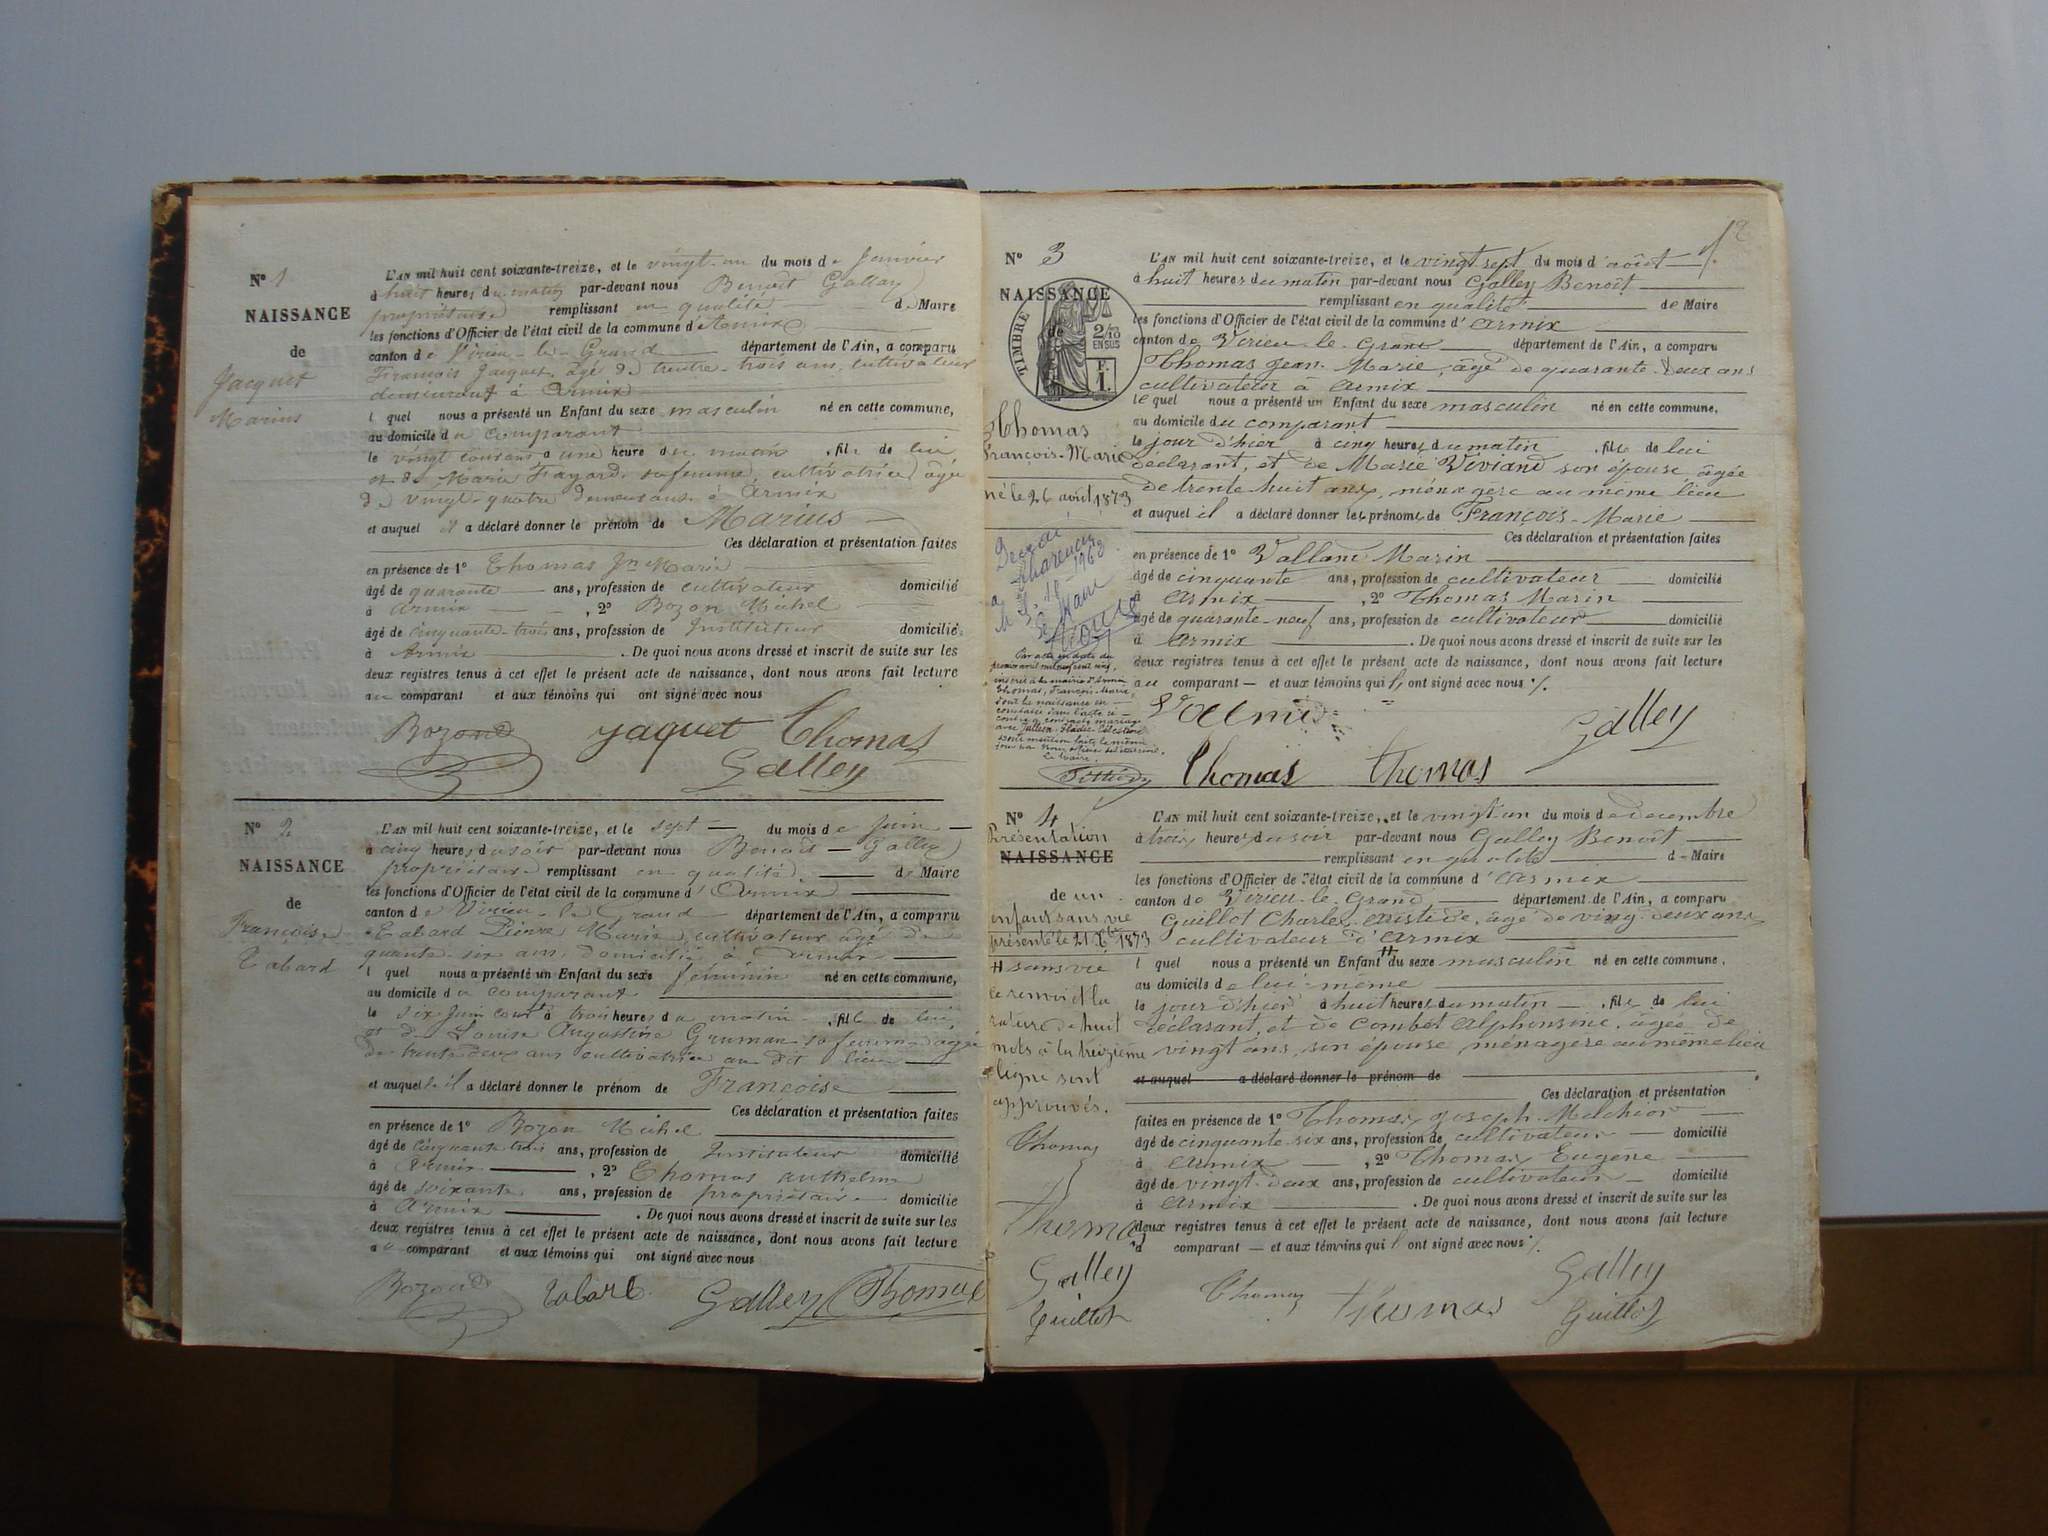 N° 1
NAISSANCE
de
Jacquet
Marius
L'AN mil huit cent soixante-treize, et le vingt-un du mois de Janvier
à huit heures du matin par-devant nous Benoît Galley
propriétaire remplissant en qualité de Maire
les fonctions d'Officier de l'état civil de la commune d'Armix
canton de Virieu-le-Grand département de l'Ain, a comparu
François Jacquet, âgé de trente-trois ans, cultivateur
demeurant à Armix
l quel nous a présenté un Enfant du sexe masculin né en cette commune,
au domicile du comparant
le vingt courant à une heure du matin, fils de lui
et de Marie Fayard, sa femme, cultivatrice, âgée
de vingt-quatre demeurant à Armix
et auquel il a déclaré donner le prénom de Marius
Ces déclaration et présentation faites
en présence de 1° Thomas Jn Marie
âgé de quarante ans, profession de cultivateur domicilié
à Armix, 2° Bozon Michel
âgé de cinquante-trois ans, profession de Instituteur domicilié
à Armix. De quoi nous avons dressé et inscrit de suite sur les
deux registres tenus à cet effet le présent acte de naissance, dont nous avons fait lecture
au comparant et aux témoins qui ont signé avec nous
Bozon Jaquet Thomas
Galley
N° 2
NAISSANCE
de
Françoise
Tabard
L'AN mil huit cent soixante-treize, et le sept du mois de Juin
à cinq heures du soir par-devant nous Benoît Galley
propriétaire remplissant en qualité de Maire
les fonctions d'Officier de l'état civil de la commune d'Armix
canton de Virieu-le-Grand département de l'Ain, a comparu
Tabard Pierre Marie, cultivateur âgé de
quarante-six ans, domicilié à Armix
l quel nous a présenté un Enfant du sexe féminin né en cette commune,
au domicile du comparant
le six Juin courant à trois heures du matin, fille de lui,
et de Louise Augustine sa femme âgée
de trente deux ans cultivatrice au dit lieu
et auquel il a déclaré donner le prénom de Françoise
Ces déclaration et présentation faites
en présence de 1° Bozon Michel
âgé de cinquante-trois ans, profession de Instituteur domicilié
à Armix, 2° Thomas Anthelme
âgé de soixante ans, profession de propriétaire domicilié
à Armix. De quoi nous avons dressé et inscrit de suite sur les
deux registres tenus à cet effet le présent acte de naissance, dont nous avons fait lecture
au comparant et aux témoins qui ont signé avec nous
Bozon Tabard Galley Thomas
2
N° 3
NAISSANCE
de
TIMBRE
2/10 EN SUS
1 F.
Thomas
François-Marie
né le 26 août 1873
Décédé
à
Le Maire
Par acte en date du
inscrit à la mairie d'Armix
Thomas, François-Marie,
dont la naissance est
constatée dans l'acte ci-
contre a contracté mariage
avec
Le Maire.
L'AN mil huit cent soixante-treize, et le vingt sept du mois d'août
à huit heures du matin par-devant nous Galley Benoît
remplissant en qualité de Maire
les fonctions d'Officier de l'état civil de la commune d'Armix
canton de Virieu-le-Grand département de l'Ain, a comparu
Thomas Jean-Marie, âgé de quarante-deux ans
cultivateur à Armix
le quel nous a présenté un Enfant du sexe masculin né en cette commune,
au domicile du comparant
le jour d'hier à cinq heures du matin, fils de lui
déclarant, et de Marie Viviand son épouse, âgée
de trente huit ans, ménagère au même lieu
et auquel il a déclaré donner les prénoms de François-Marie
Ces déclaration et présentation faites
en présence de 1° Vallant Marin
âgé de cinquante ans, profession de cultivateur domicilié
à Armix, 2° Thomas Marin
âgé de quarante-neuf ans, profession de cultivateur domicilié
à Armix. De quoi nous avons dressé et inscrit de suite sur les
deux registres tenus à cet effet le présent acte de naissance, dont nous avons fait lecture
au comparant et aux témoins qui ont signé avec nous
Galley
Thomas Thomas
N° 4
Présentation
NAISSANCE
de un
enfant sans vie
présenté le 21 Xbre 1873
# sans vie
le renvoi et la
rature de huit
mots à la treizième
ligne sont
approuvés.
Thomas
Thomas
Galley
Guillot
L'AN mil huit cent soixante-treize, et le vingt un du mois de décembre
à trois heures du soir par-devant nous Galley Benoît
remplissant en qualité de Maire
les fonctions d'Officier de l'état civil de la commune d'Armix
canton de Virieu-le-Grand département de l'Ain, a comparu
Guillot Charles Aristide, âgé de vingt-deux ans
cultivateur d'Armix
l quel nous a présenté un Enfant # du sexe masculin né en cette commune,
au domicile de lui-même
le jour d'hier à huit heures du matin, fils de lui
déclarant, et de Combet Alphonsine, âgée de
vingt ans, son épouse, ménagère au même lieu
et auquel a déclaré donner le prénom de
Ces déclaration et présentation
faites en présence de 1° Thomas Joseph-Melchior
âgé de cinquante six ans, profession de cultivateur domicilié
à Armix, 2° Thomas Eugène
âgé de vingt-deux ans, profession de cultivateur domicilié
à Armix. De quoi nous avons dressé et inscrit de suite sur les
deux registres tenus à cet effet le présent acte de naissance, dont nous avons fait lecture
à comparant et aux témoins qui ont signé avec nous
Thomas Thomas Galley
Guillot